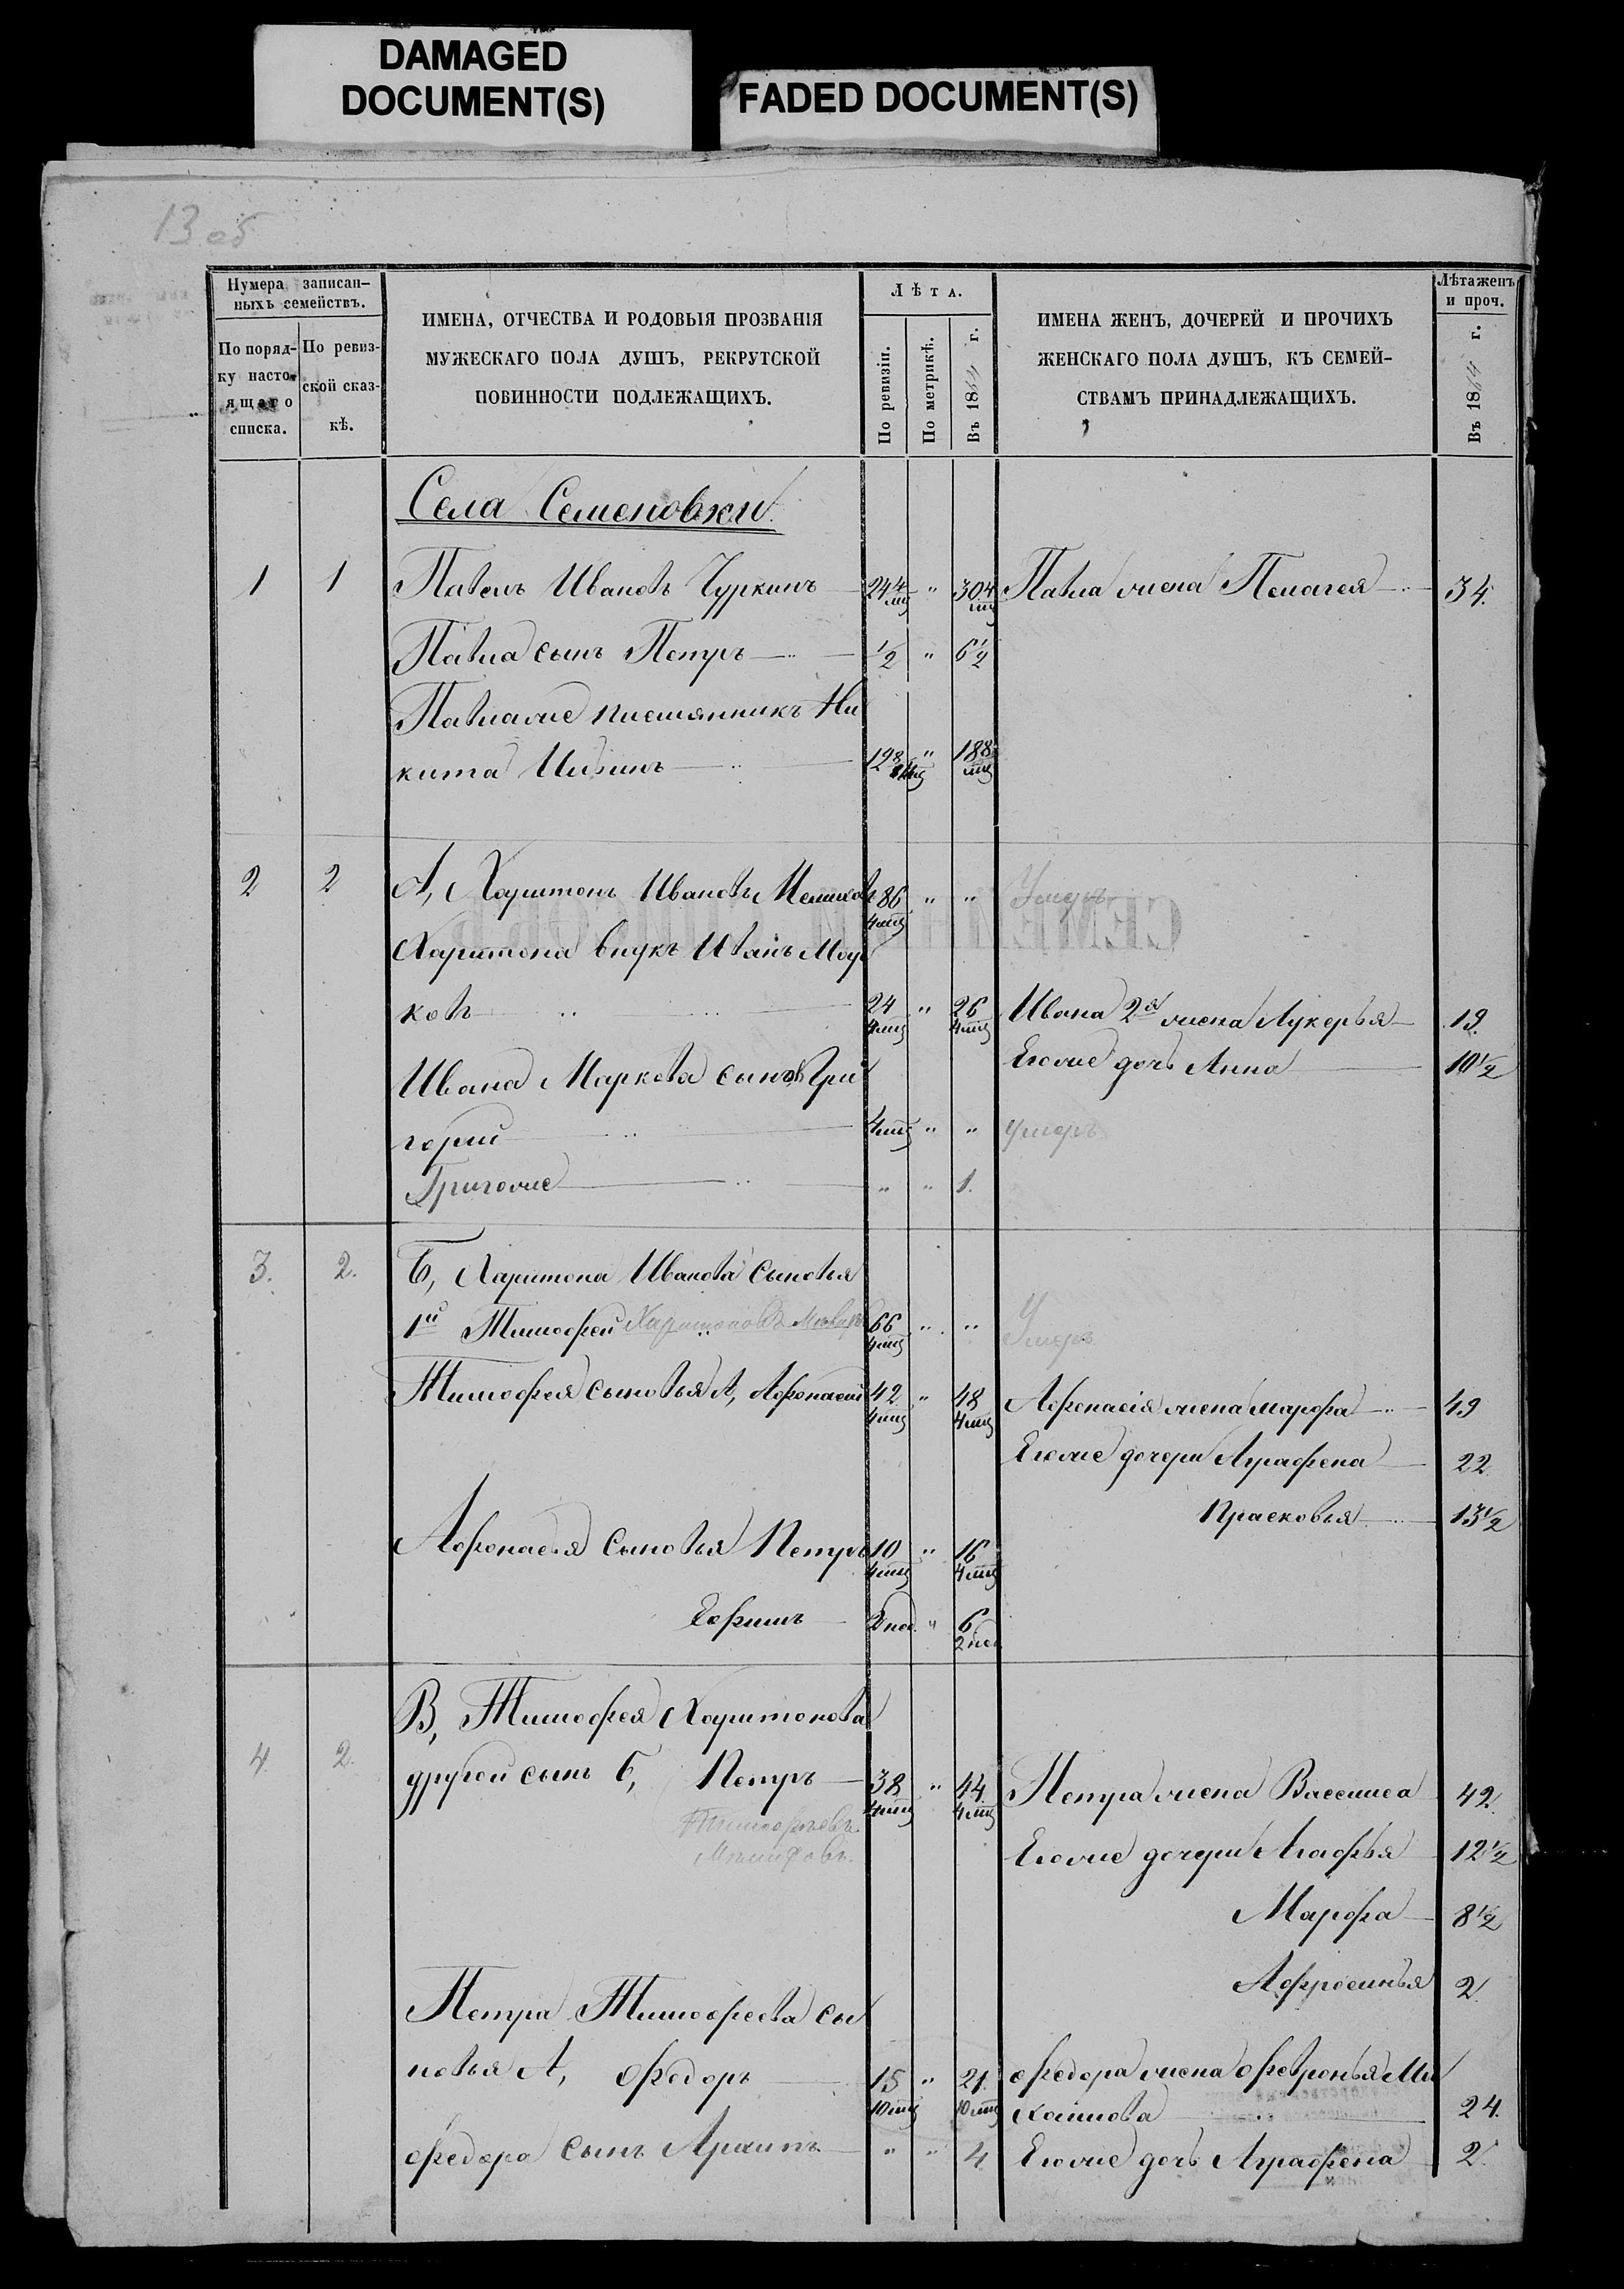 DAMAGED
DOCUMENT(S)
FADED DOCUMENT(S)
13 об
Нумера записан-
ныхъ семействъ.
По поряд-
ку насто-
ящаго
списка.
По ревиз-
ской сказ-
кѣ.
ИМЕНА, ОТЧЕСТВА И РОДОВЫЯ ПРОЗВАНІЯ
МУЖЕСКАГО ПОЛА ДУШЪ, РЕКРУТСКОЙ
ПОВИННОСТИ ПОДЛЕЖАЩИХЪ.
Лѣта.
По ревизіи.
По метрикѣ.
Въ 1864 г.
ИМЕНА ЖЕНЪ, ДОЧЕРЕЙ И ПРОЧИХЪ
ЖЕНСКАГО ПОЛА ДУШЪ, КЪ СЕМЕЙ-
СТВАМЪ ПРИНАДЛЕЖАЩИХЪ.
Лѣта женъ
и проч.
Въ 1864 г.
Села Семеновки
1 1 Павелъ Ивановъ Чуркинъ 24 4 мц " 30 4 мц Павла жена Пелагея 34.
Павла сынъ Петръ 1/2 " 6 1/2
Павла же племянникъ Ни
кита 12 8 мц " 18 8 мц
2 2 А, Харитонъ Ивановъ 86 4 мц " " Умеръ
Харитона внукъ Иванъ Мар
ковъ 24 4 мц " 26 4 мц Ивана 2я жена Лукерья 19.
Его же дочь Анна 10 1/2
Ивана Маркова сынъ Гри
горий 4 мц " " умеръ
Григорий " " 1.
3. 2. Б, Харитона Иванова сыновья
1й Тимофей Харитоновъ 66 4 мц " " Умеръ
Тимофея сыновья А, Афонасий 42 4 мц " 48 4 мц Афонасія жена Марфа 49
Его же дочери Аграфена 22.
Прасковья 13 1/2
Афонасья сыновья Петръ 10 4 мц " 16 4 мц
Ефимъ 2 нед. " 6 2 нед
В, Тимофея Харитонова
4 2. другой сынъ Б, Петръ 38 4 мц " 44 4 мц Петра жена Василиса 42.
Тимофеевъ
Его же дочери Агафья 12 1/2
Марфа 8 1/2
Афросинья 2
Петра Тимофеева сы
новья А, Федоръ 15 10 мц " 21. 10 мц Федора жена Февронья Ми
хайлова 24.
Федора сынъ Архипъ " " 4. Его же дочь Аграфена 2.